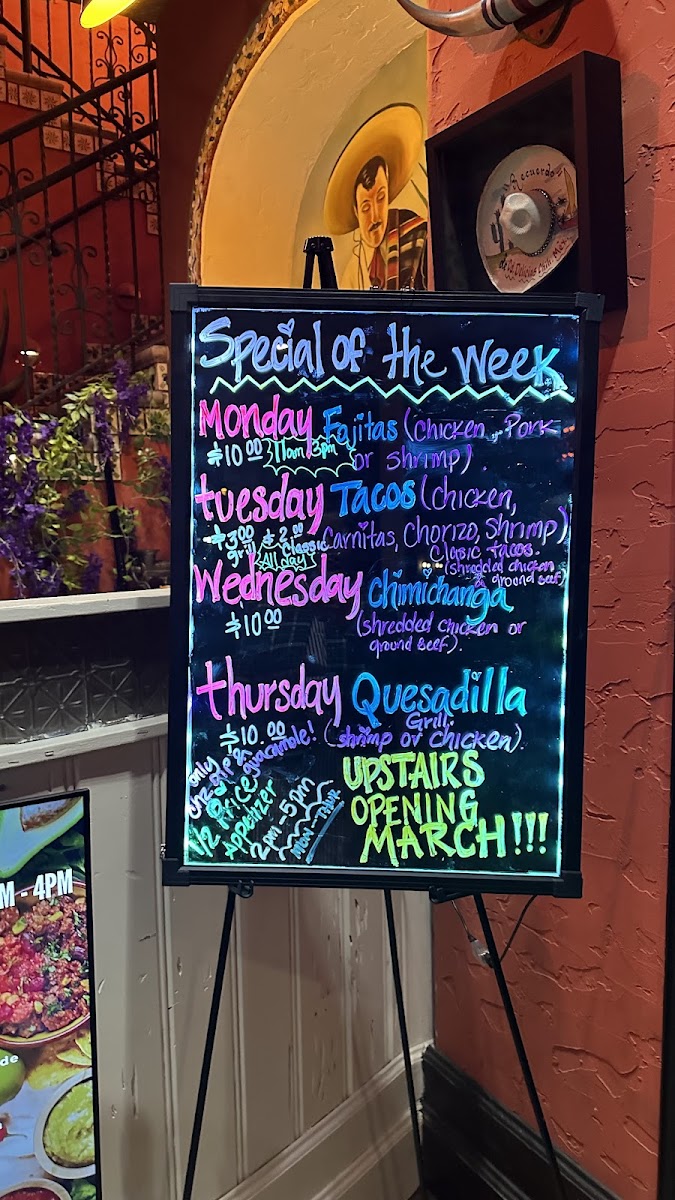 Recuerdo
de Cd. Delicias Chih. Mex.
Special of the Week
Monday Fajitas (chicken, Pork
$10.00 11am 3pm or shrimp).
tuesday Tacos (chicken,
$3.00 grill $2.00 classic Carnitas, Chorizo, Shrimp)
All day Clasic tacos.
(shredded chicken
ground beef)
Wednesday chimichanga
$10.00 (shredded chicken or
ground beef).
thursday Quesadilla
$10.00 Grill.
(shrimp or chicken)
only
guacamole!
1/2 Price
Appetizer
2pm-5pm
Mon-Thur
UPSTAIRS
OPENING
MARCH!!!
M - 4PM
de